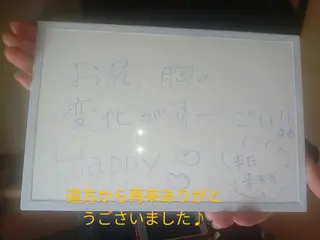 お尻、胸の
変化がすーごい!!
Happy ♡
♡
また
来ます
遠方から再来ありがと
うございました♪